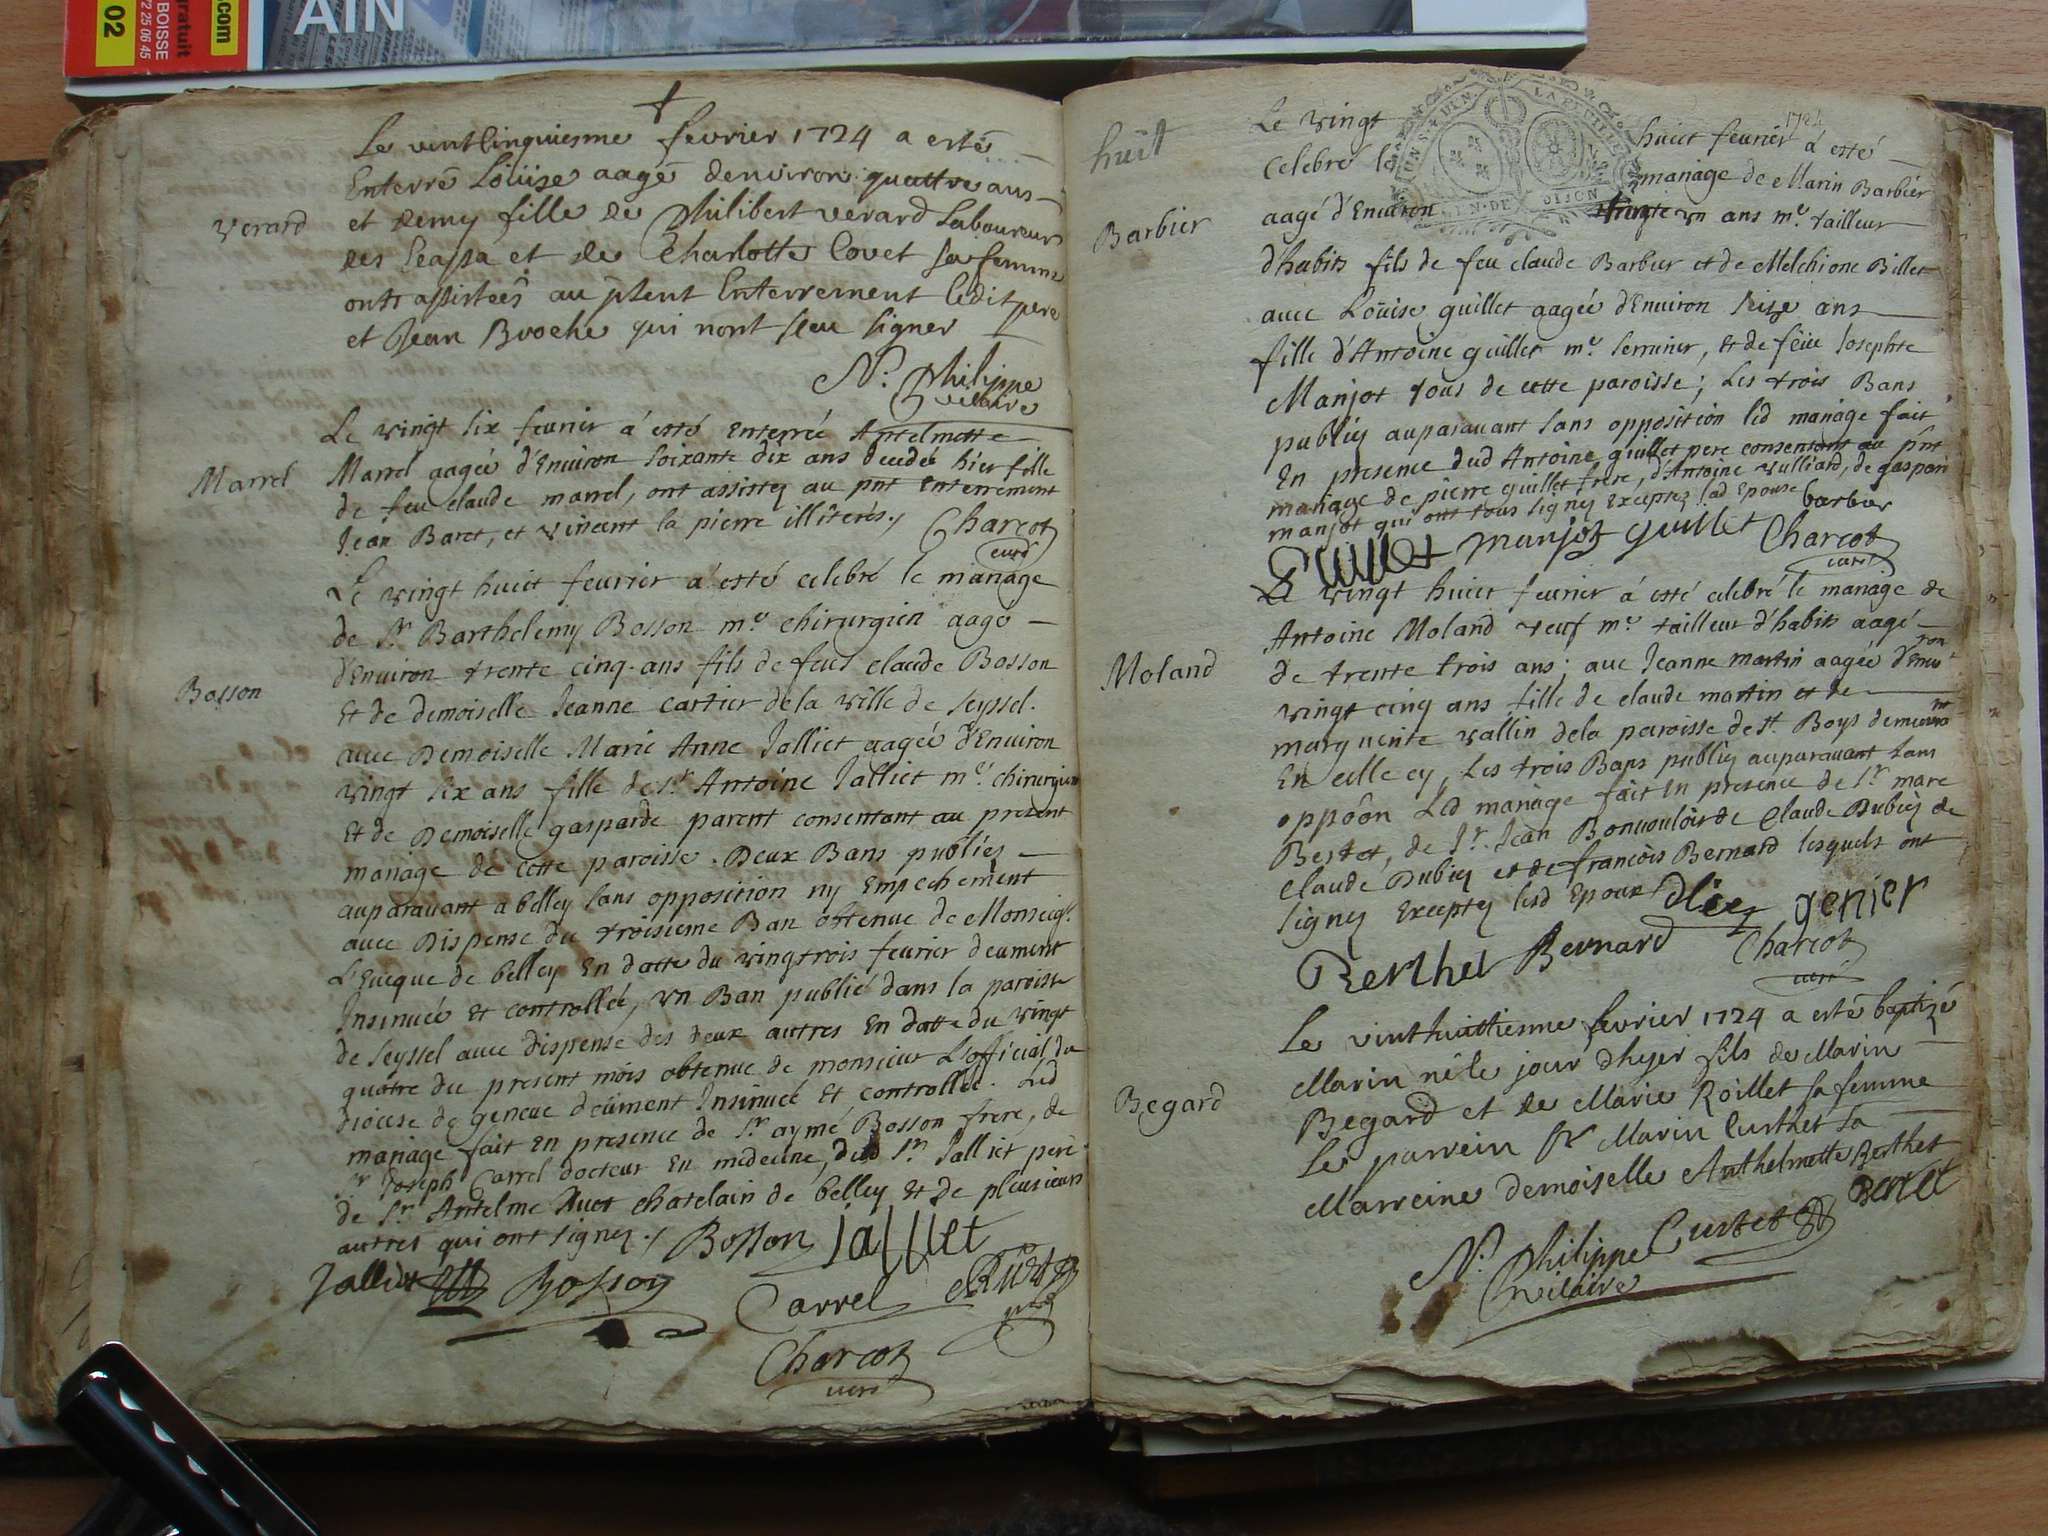 AIN
.com
gratuit
02
BOISSE
72 25 06 45
Le vintcinquiesme fevrier 1724 a estè
Enterrè Loüize aagè denviron quattre ans
Verard
et demy fille de Philibert verard Laboureur
et de Charlotte Covet sa femme
ont assistees au pñent Enterrement Ledit pere
et Jean Broche qui nont sceu signer
N. Philippe
vicaire
Le vingt six feurier á esté enterrée Antelmette
Marrel
Marrel aagée d'Enuiron soixante dix ans decedée hier fille
de feu claude marrel, ont assistez au pnt enterrement
Jean Baret, et vincent la pierre illiterés./ Charcot
curé
Le vingt huict feurier a esté celebré le mariage
de Sr Barthelemy Bosson me chirurgien aagé
Bosson
d'Enuiron trente cinq ans fils de feus claude Bosson
Et de demoiselle Jeanne cartier de la ville de seyssel.
auec Demoiselle Marie Anne Jalliet aagée d'Enuiron
vingt six ans fille de sr Antoine Jalliet me chirurgien
Et de Demoiselle gasparde parent consentant au present
mariage de cette paroisse. Deux Bans publiés
auparauant a belley sans opposition ny Empechement
auec Dispense du troisieme Ban obtenue de Monseigr
L'Eueque de belley En datte du vingtrois feurier deument
Insinuée et controllée, vn Ban publié dans la paroisse
de seyssel auec dispense des deux autres En datte du vingt
quatre du present mois obtenue de monsieur L'official du
diocese de geneue deüment Insinuée Et controllée. Led
mariage fait en presence de Sr aymé Bosson frere, de
Sr Joseph Carrel docteur en medecine, dud Sr Jalliet pere
de Sr Antelme Auet chatelain de belley et de plusieurs
autres qui ont signez./ Bosson Jalliet
Jalliet Bosson
Carrel
Charcot
curé
huit
Le vingt huict feurier 1724 á esté
celebré le mariage de Marin Barbier
Barbier
aagé d'Enuiron trente vn ans me tailleur
d'habits fils de feu claude Barbier et de Melchione Billet
auec Loüise guillet aagée d'Enuiron seize ans
fille d'Antoine guillet me serrurier, et de feüe Josephte
Manjot tous de cette paroisse; Les trois Bans
publiez auparauant sans opposition led mariage fait
En presence dud Antoine guillet pere consentant au pnt
mariage de pierre guillet frere, d'Antoine vulliard, de gaspard
manjot qui ont tous signez exceptez lad Epouse barbier
Guillet manjot guillet Charcot
curé
Le vingt huict feurier á esté celebré le mariage de
Antoine Moland veuf me tailleur d'habits aagé
Moland
de trente trois ans; auec Jeanne martin aagée d'Enuiron
vingt cinq ans fille de claude martin et de
marguerite vallin dela paroisse de st Boys demeurant
En celle cy, Les trois Bans publiez auparauant sans
oppoôn Led mariage fait En presence de Sr marc
Bertet, de Sr Jean Bonuouloir de Claude Dubiez de
claude Dubiez et de francois Bernard lesquels ont
signez Exceptez lesd Epoux genier
Berthet Bernard Charcot
curé
Le vinthuittiesme fevrier 1724 a estè baptizè
Marin nè le jour dhyer fils de Marin
Begard
Begard et de Marie Roillet sa femme
Le parrein Sr Marin Curthet La
Marreine demoiselle Anthelmette Berthet
N. Philippe Curtet Bertet
vicaire